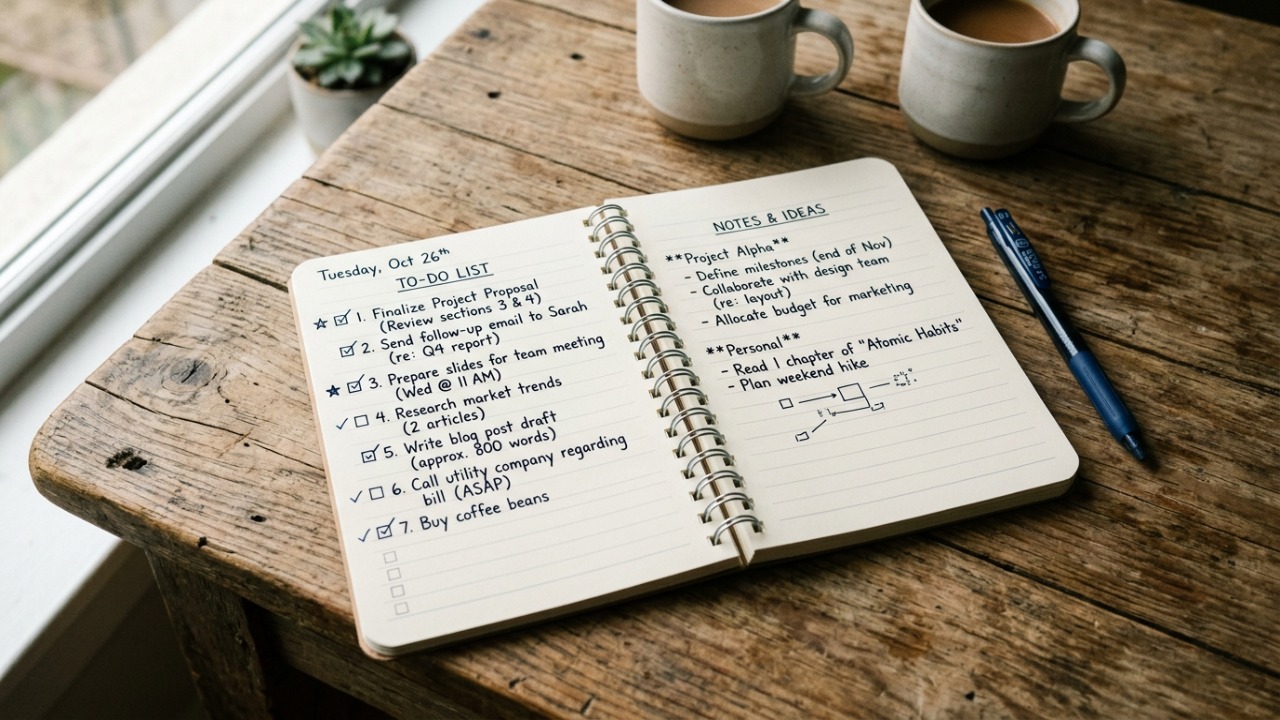 Tuesday, Oct 26th
TO-DO LIST
1. Finalize Project Proposal
(Review sections 3 & 4)
2. Send follow-up email to Sarah
(re: Q4 report)
3. Prepare slides for team meeting
(Wed @ 11 AM)
4. Research market trends
(2 articles)
5. Write blog post draft
(approx. 800 words)
6. Call utility company regarding
bill (ASAP)
7. Buy coffee beans
NOTES & IDEAS
**Project Alpha**
- Define milestones (end of Nov)
- Collaborate with design team
(re: layout)
- Allocate budget for marketing
**Personal**
- Read 1 chapter of "Atomic Habits"
- Plan weekend hike